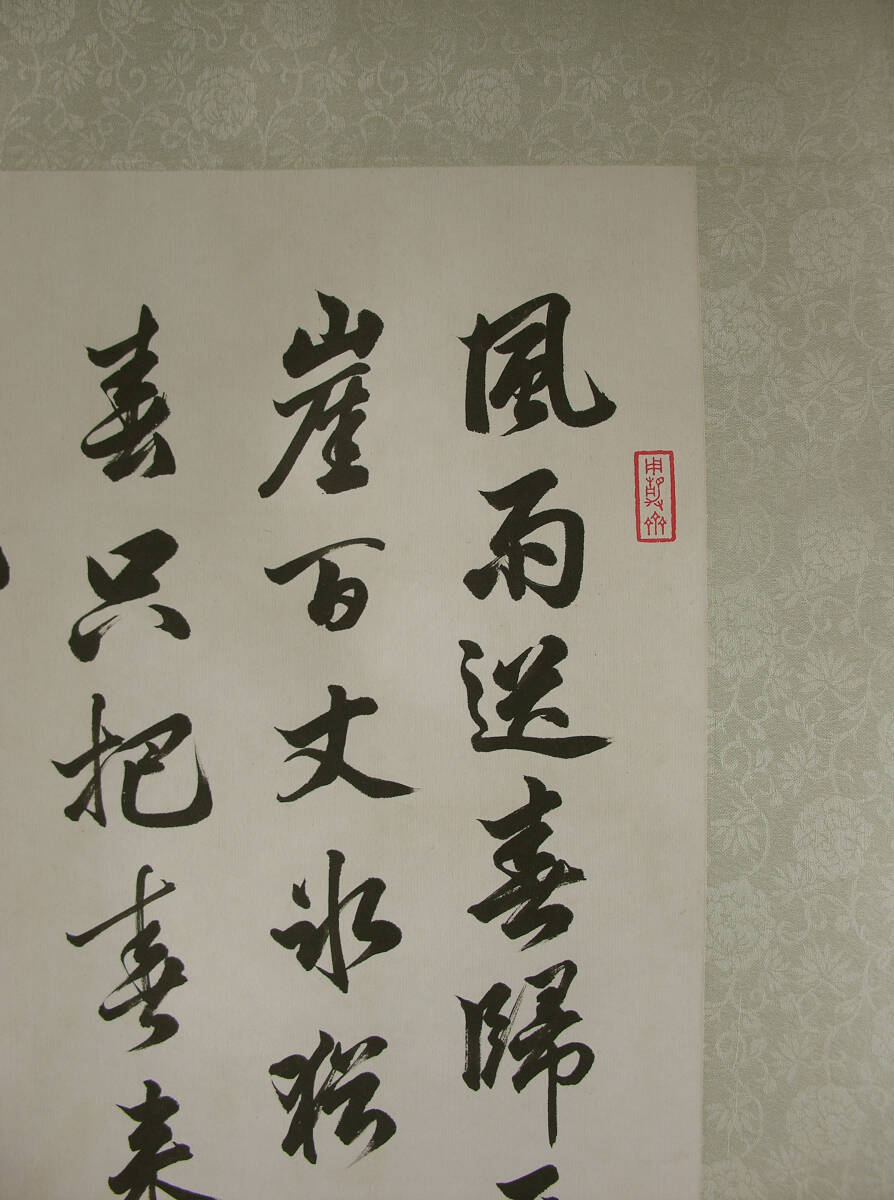 風雨送春歸
崖百丈冰猶
春只把春來